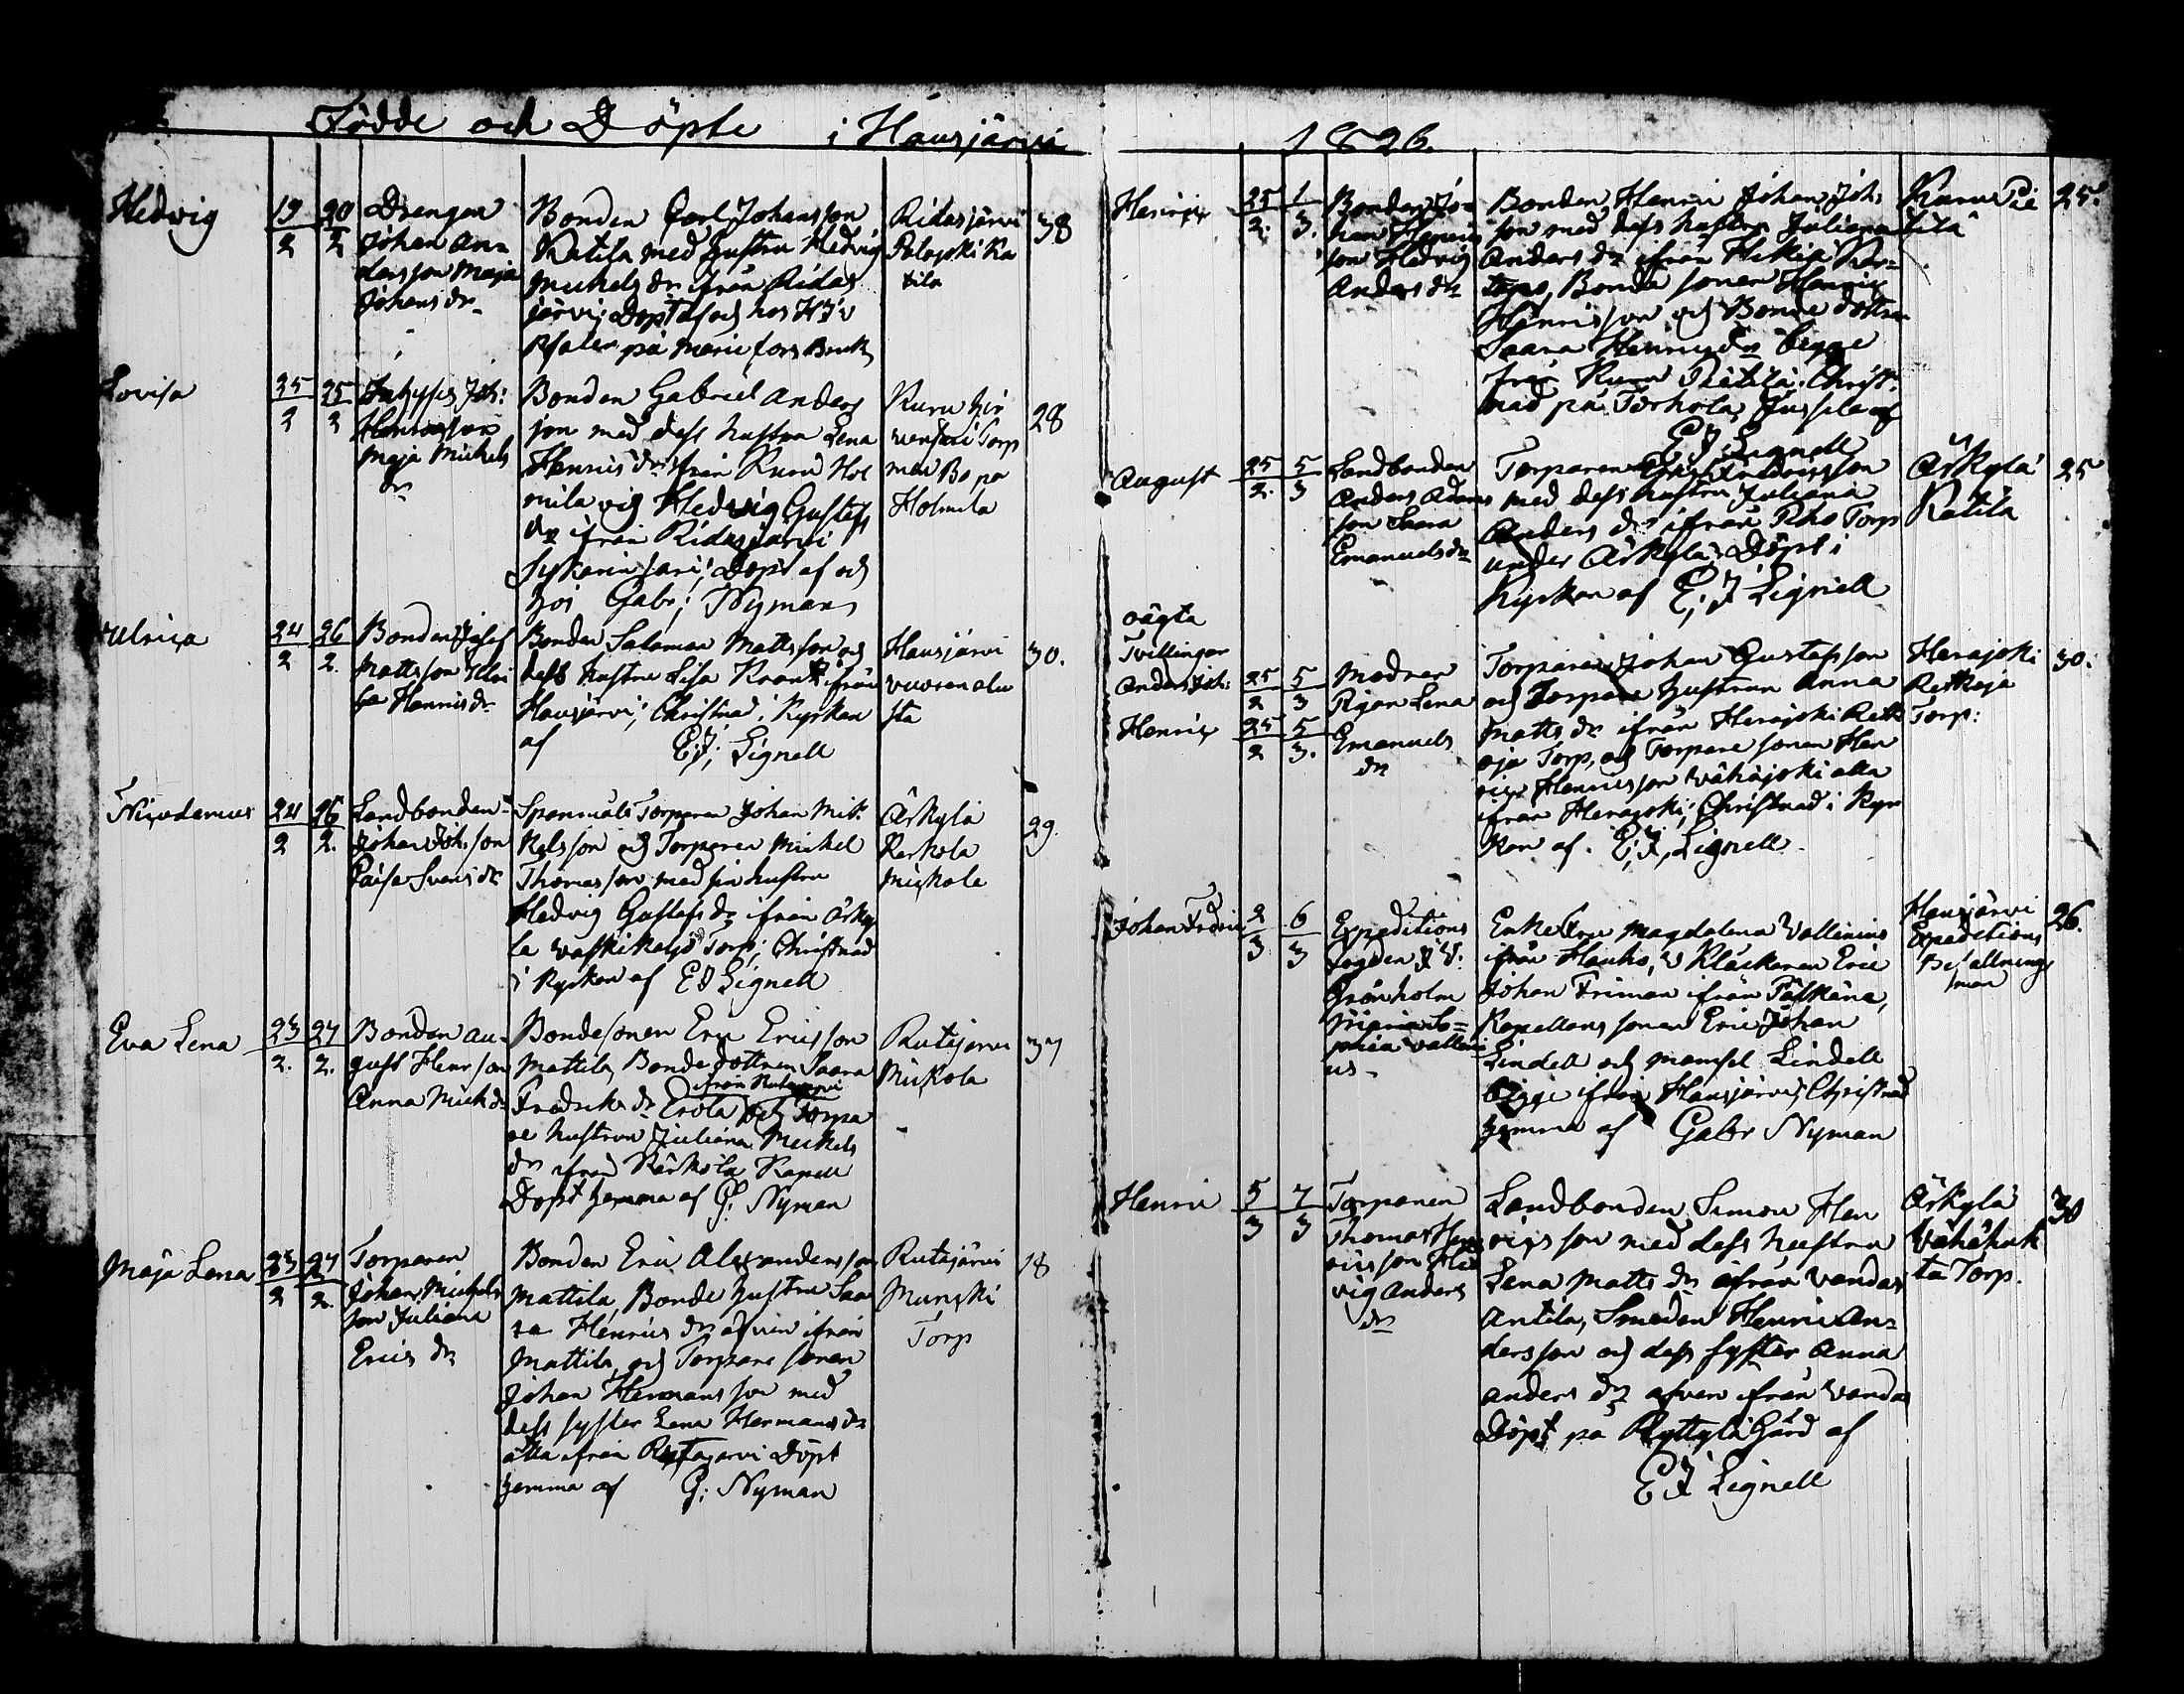 Födde och Döpte i Hausjärvi
1826.
Hedvig
19
2
20
2
Drengen
Johan An-
dersson Maja
Johans dr
Bonden Carl Johansson
Katila med hustru Hedvig
Michels dr ifrån Ridas
järvi; Döpt af och hos
på Mariefors Bruk
Ridasjärvi
Ka
tila
38
Lovisa
25
2
25
2
Inhyses Joh:
Henricsson
Maja Michels
dr
Bonden Gabriel Anders
son med dess hustru Lena
Henrics dr ifrån Kuru Hol
mila och Hedvig Gustafs
dr ifrån Ridasjärvi
Döpt af och
hos Gabr: Nyman
Kuru
Torp
Holmila
28
Ulrica
24
2
26
2.
Bonden Josef
Mattsson Ulri
ca Henrics dr
Bonden Salomon Mattsson och
dess hustru Lisa ifrån
Hausjärvi; Christnad i Kyrkan
af E; J; Lignell
Hausjärvi
vuorenalu
sta
30.
Nicodemus
24
2
26
2.
Landbonden
Johan Joh:sson
Caisa Svens dr
Spanmåls Torparen Johan Mic
kelsson och Torparen Michel
Thomasson med sin hustru
Hedvig Gustafs dr ifrån Erky
lä Torp; Christnad
i Kyrkan af E J Lignell
Erkylä
Kerkola
Mickola
29.
Eva Lena
23
2.
27
2.
Bonden Au-
gust Henr:son
Anna Mich dr
Bondesonen Eric Ericsson
Mattila, Bondedottren Saara
ifrån Rutajärvi
Fredriks dr Erola och Torpa
re hustrun Juliana Michels
dr ifrån Kärkölä Kapell
Döpt hemma af G: Nyman
Rutajärvi
Mickola
37
Maja Lena
23
2
27
2.
Torparen
Johan Michels
son Juliana
Erics dr
Bonden Eric Alexandersson
Mattila, Bonde hustru Saa
ra Henrics dr äfven ifrån
Mattila, och Torpare sonen
Johan Hermansson med
dess syster Lena Hermans dr
alla ifrån Rutajärvi Döpt
hemma af G; Nyman
Rutajärvi
Torp
18
Henric
25
2.
1
3.
Bonden Jo-
han Henrics
son Hedvig
Anders dr
Bonden Henric Johan Joh:
son med dess hustru Juliana
Anders dr ifrån Hikiä
Bonde sonen Henric
Henricsson och Bonde dottren
Saara Henrics dr begge
från Kuru Pietilä. Christ-
nad på Torhola, af
E J Lignell
Kuru Pie
tilä
25.
August
25
2.
5
3
Landbonden
Anders Adams
son Saara
Emanuels dr
Torparen
med dess hustru Juliana
Anders dr ifrån Torp
under Erkylä; Döpt i
Kyrkan af E; J Lignell
Erkylä
Katila
25
oägta
Tvillingar
Anders Joh:
25
2
5
3
Henric
25
2
5
3.
Modren
Pigan Lena
Emanuels
dr
Torparen Johan Gustafsson
och Torpare hustrun Anna
Matts dr ifrån Herajoki Retk
oja Torp, och Torpare sonen Hen
ric Henricsson Vähäjoki alla
ifrån Herajoki; Christnad i Kyr
kan af. E; J; Lignell.
Herajoki
Retkoja
Torp:
30.
Johan Fredric
2
3
6
3
Expeditions
fogden J: V:
Grönholm
Maria So-
phia Valleni
us
Enkefru Magdalena Vallenius
ifrån Hauho, Klåckaren Eric
Johan Friman ifrån Pälkäne,
Kapellans sonen Eric Johan
Lindell och mamsel Lindell
begge ifrån Hausjärvi; Christnad
hemma af Gabr Nyman
Hausjärvi
Expeditions
Befallnings
man
26.
Henric
5
3
7
3
Torparen
Thomas Hen
ricsson Hed
vig Anders
dr
Landbonden Simon Hen
ricsson med dess hustru
Lena Matts dr ifrån Vanda
Antila, Smeden Henric An-
dersson och dess syster Anna
Anders dr äfven ifrån Vanda
Döpt på Ryttylä Gård af
E J Lignell
Erkylä
Vähähuh
ta Torp.
30